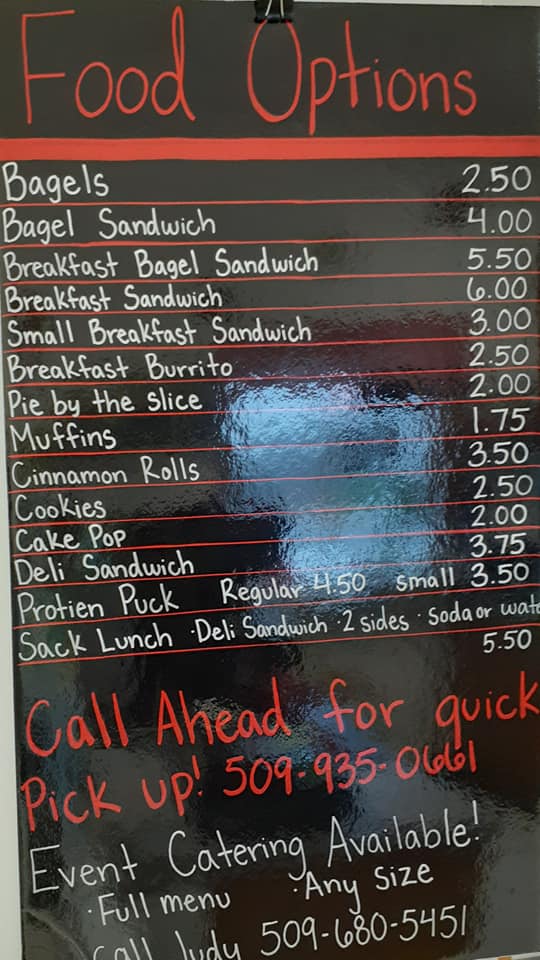 Food Options
Bagels 2.50
Bagel Sandwich 4.00
Breakfast Bagel Sandwich 5.50
Breakfast Sandwich 6.00
Small Breakfast Sandwich 3.00
Breakfast Burrito 2.50
Pie by the Slice 2.00
Muffins 1.75
Cinnamon Rolls 3.50
Cookies 2.50
Cake Pop 2.00
Deli Sandwich 3.75
Protien Puck Regular 4.50 Small 3.50
Sack Lunch ·Deli Sandwich ·2 sides ·Soda or wate
5.50
Call Ahead for quick
Pick up! 509-935-0661
Event Catering Available!
·Full menu ·Any Size
Call Judy 509-680-5451